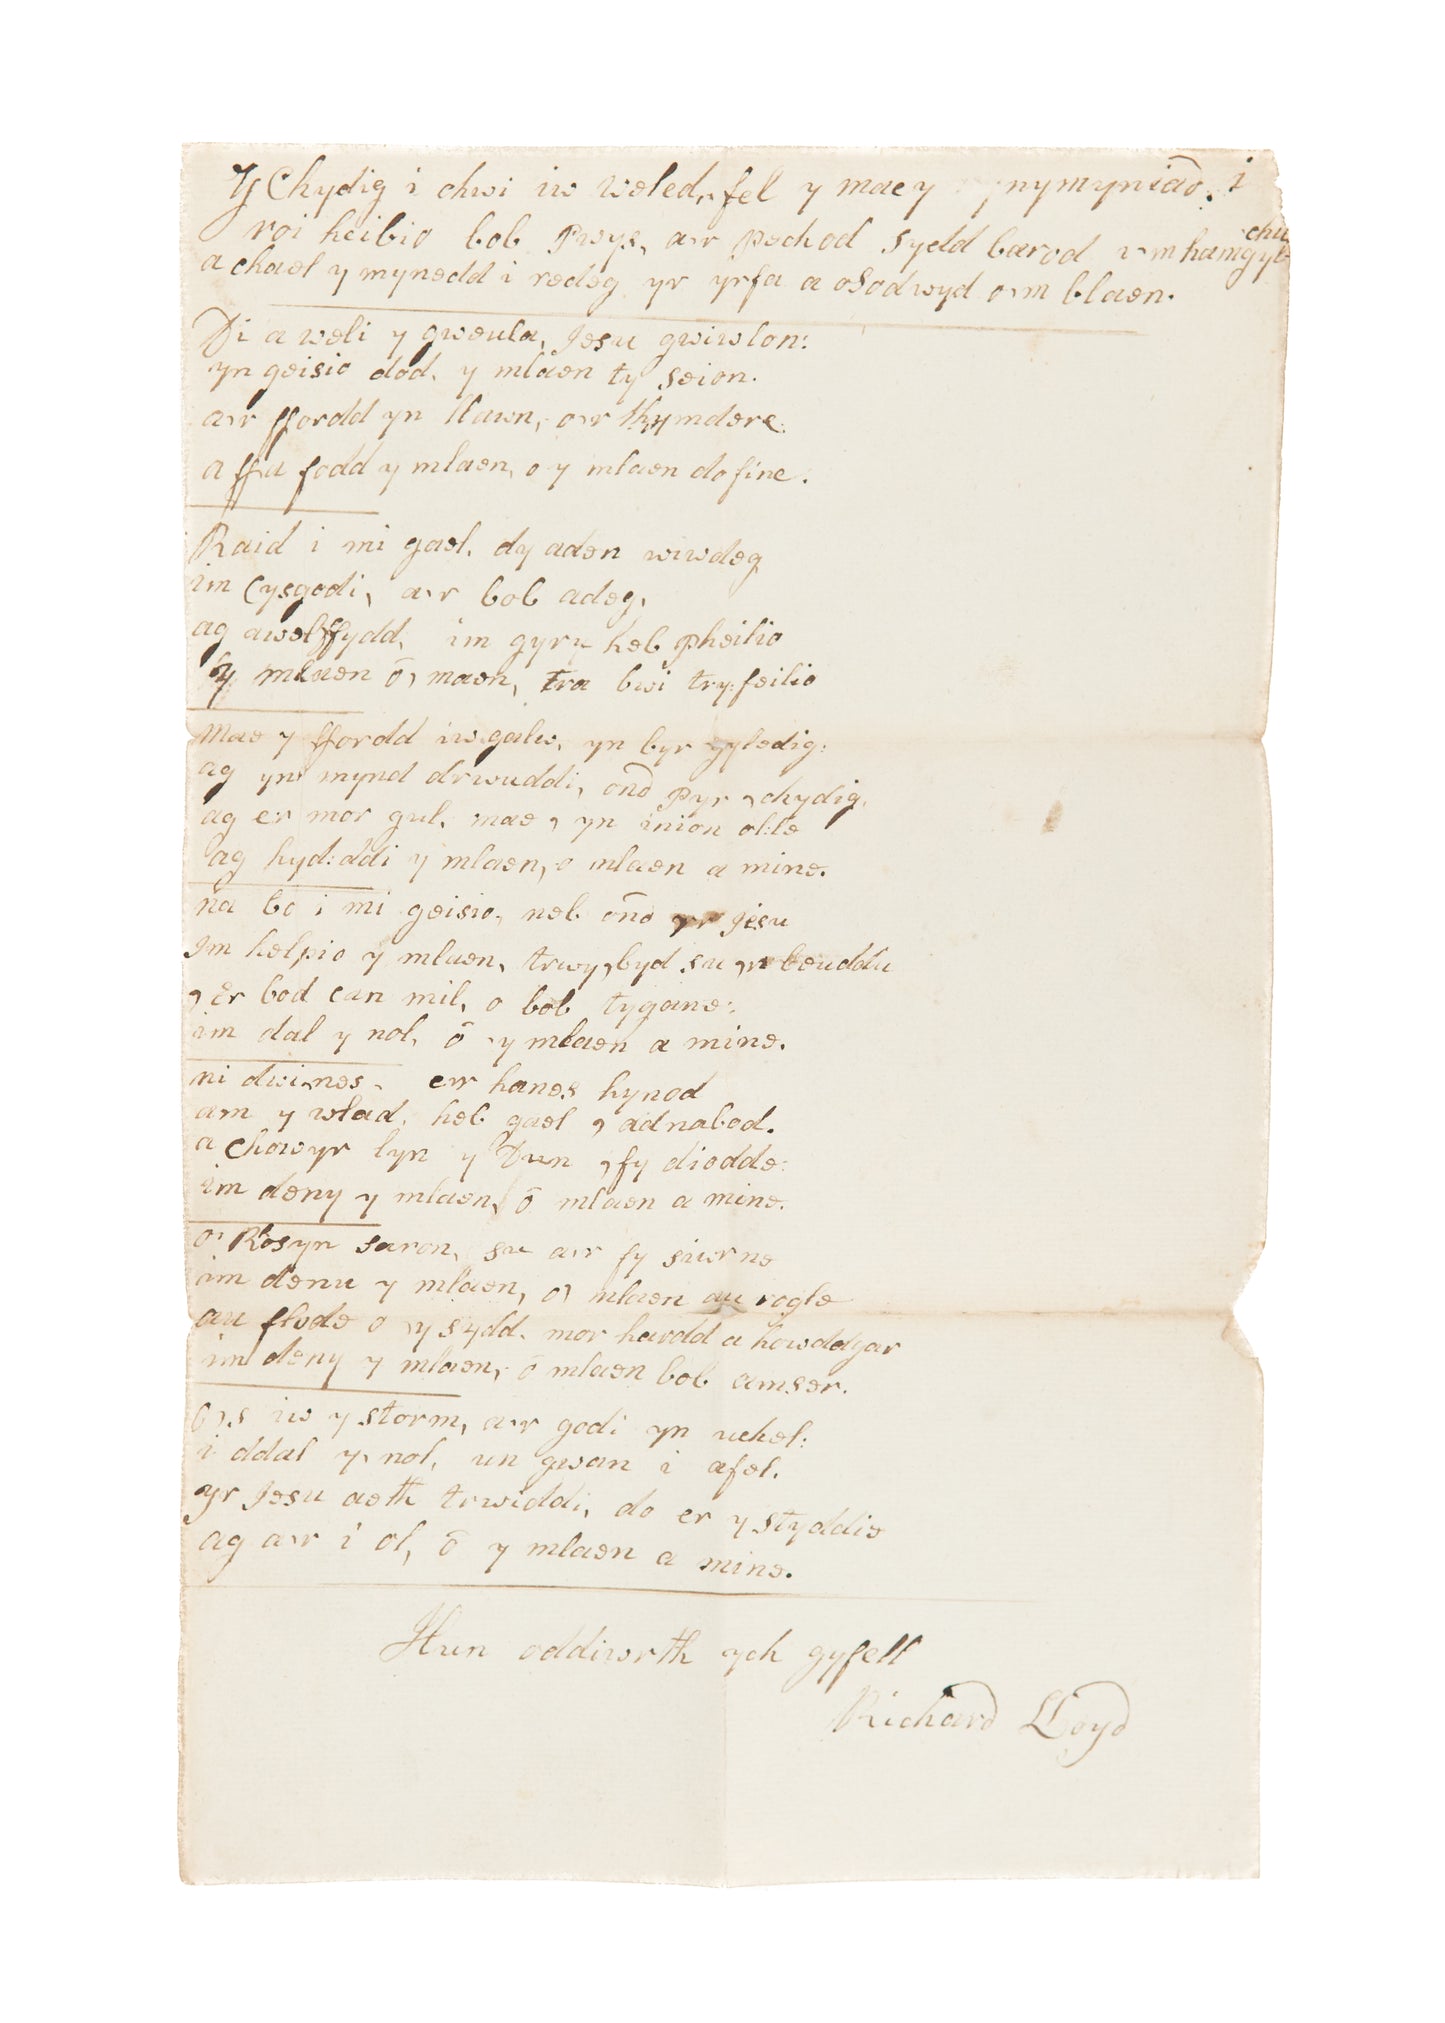 Y Chydig i chwi iw weled, fel y mae y nymyniad. i
roi heibio bob Pwys, a,r pechod sydd barod i,m hamgylchu
a chael y mynedd i redeg yr yrfa a osodwyd o,m blaen.
Di a weli y gweula, Jesu gwiwlon:
yn geisio dod. y mlaen ty seion.
a,r ffordd yn llawn, o,r thymdere:
a ffu fodd y mlaen, o y mlaen do fine.
Raid i mi gael. dy aden wiwdeg
im Cysgodi, a,r bob adeg,
ag awel ffydd, im gyru heb pheilio
y mlaen ō, maen, tra bwi try:feilio
Mae y ffordd iw galw, yn byr gyledig:
ag yn mynd drwuddi, ond pyr ychydig,
ag er mor gul, mae, yn inion ol:le
ag hyd:ddi y mlaen, o mlaen a mine.
na bo i mi geisio, neb ond yr Jesu
Im helpio y mlaen, trwy,byd su,n beuddu
, Er bod can mil, o bob tygane:
im dal y nol, ō y mlaen a mine.
ni dwi,nes, er hanes hynod
am y wlad, heb gael, adnabod.
a chowyr lyn y Dun, fy diodde:
im deny y mlaen, ō mlaen a mine.
o, Rosyn saron, su a,r fy siwrne
im denu y mlaen, o, mlaen au rogle
au flode o,y sydd. mor hardd a howddgar
im deny y mlaen, ō mlaen bob amser.
b,s iw y storm, a,r godi yn uchel:
i ddal y, nol, un gwan i afel.
yr Jesu aeth trwiddi, do er y styddie
ag a,r i ol, ō y mlaen a mine.
Hun oddiwrth ych gyfell
Richard Lloyd